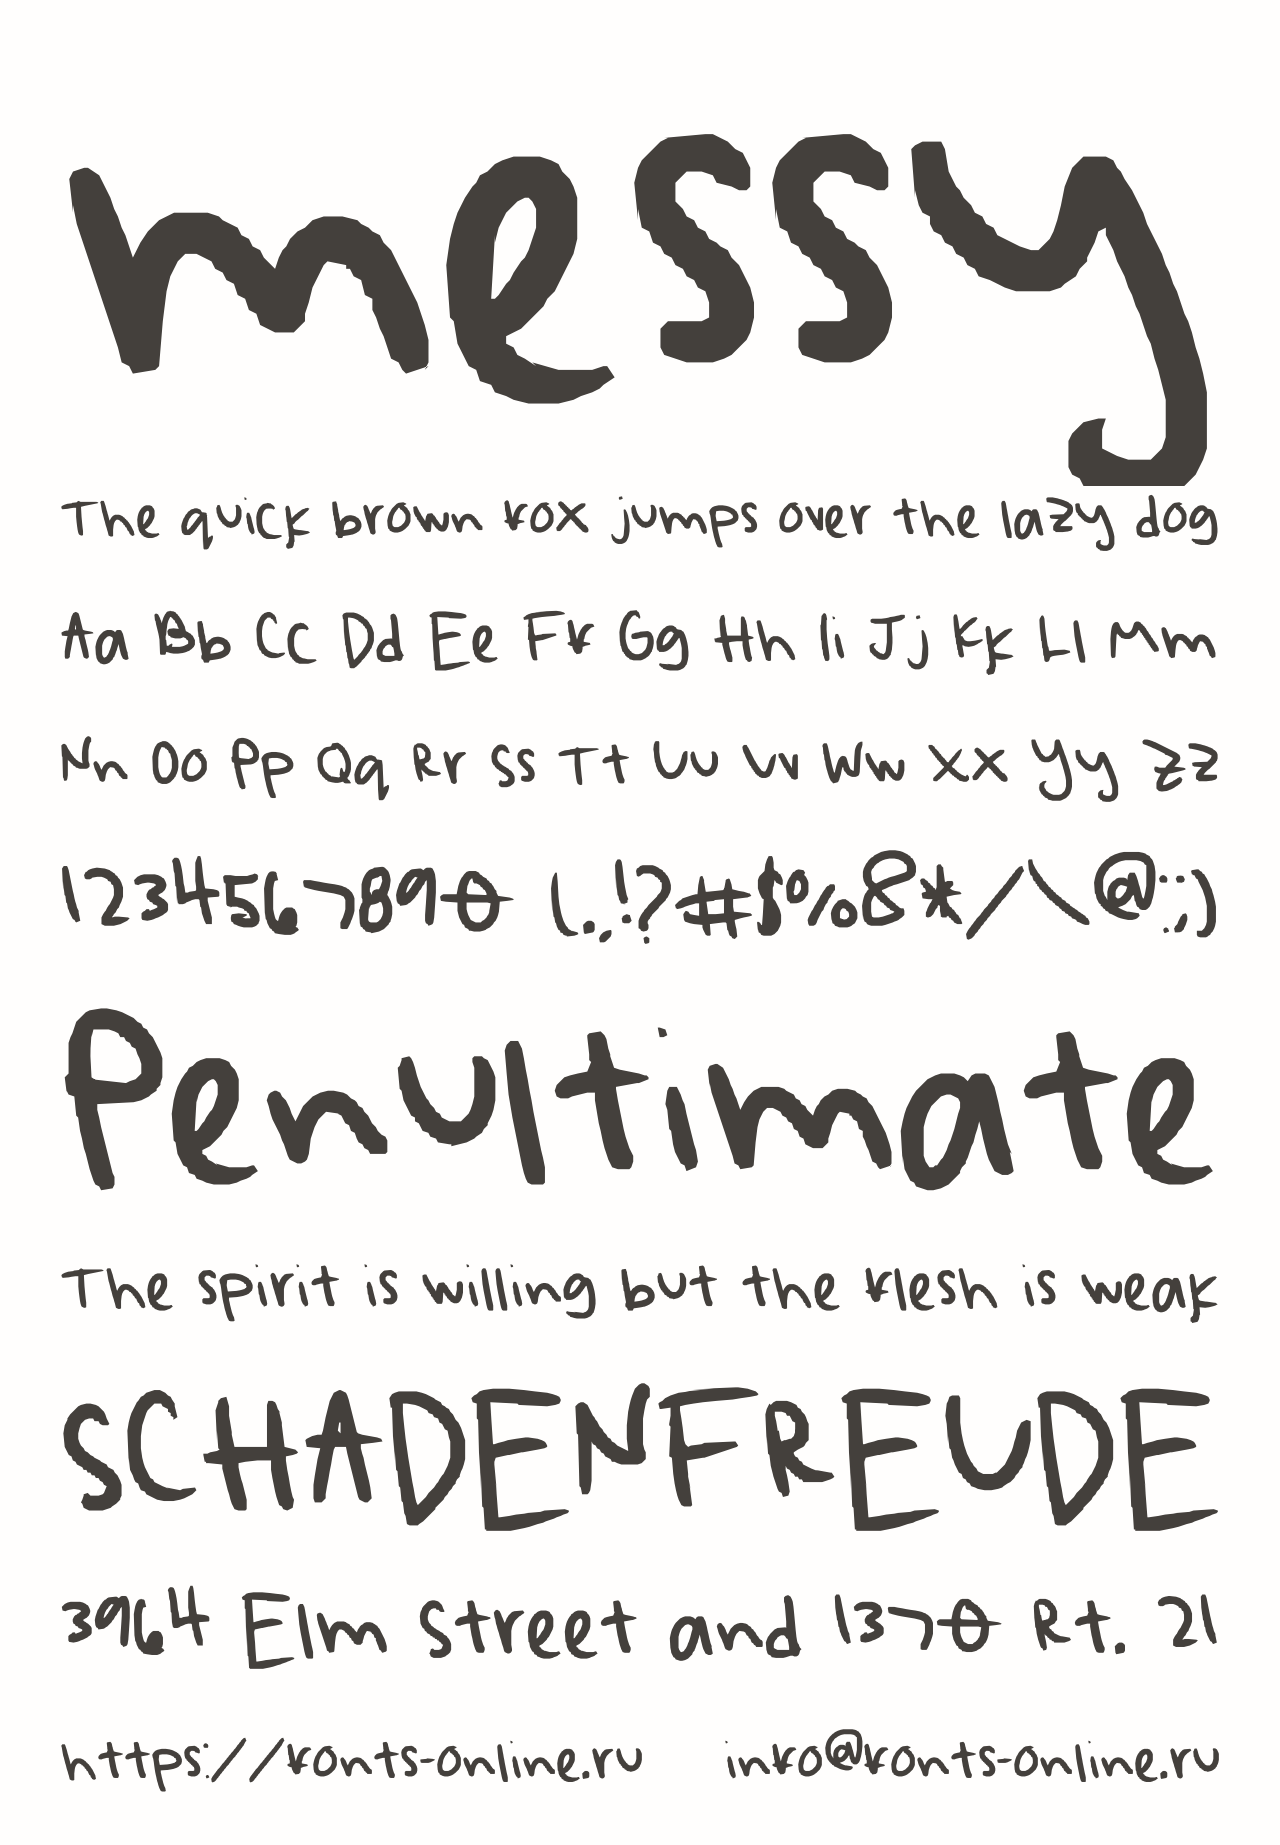 messy
The quick brown fox jumps over the lazy dog
Aa Bb Cc Dd Ee Ff Gg Hh Ii Jj Kk Ll Mm
Nn Oo Pp Qq Rr Ss Tt Uu Vv Ww Xx Yy Zz
1234567890 (.,!?#$%&*/\@:;)
Penultimate
The spirit is willing but the flesh is weak
SCHADENFREUDE
3964 Elm Street and 1370 Rt. 21
https://fonts-online.ru info@fonts-online.ru